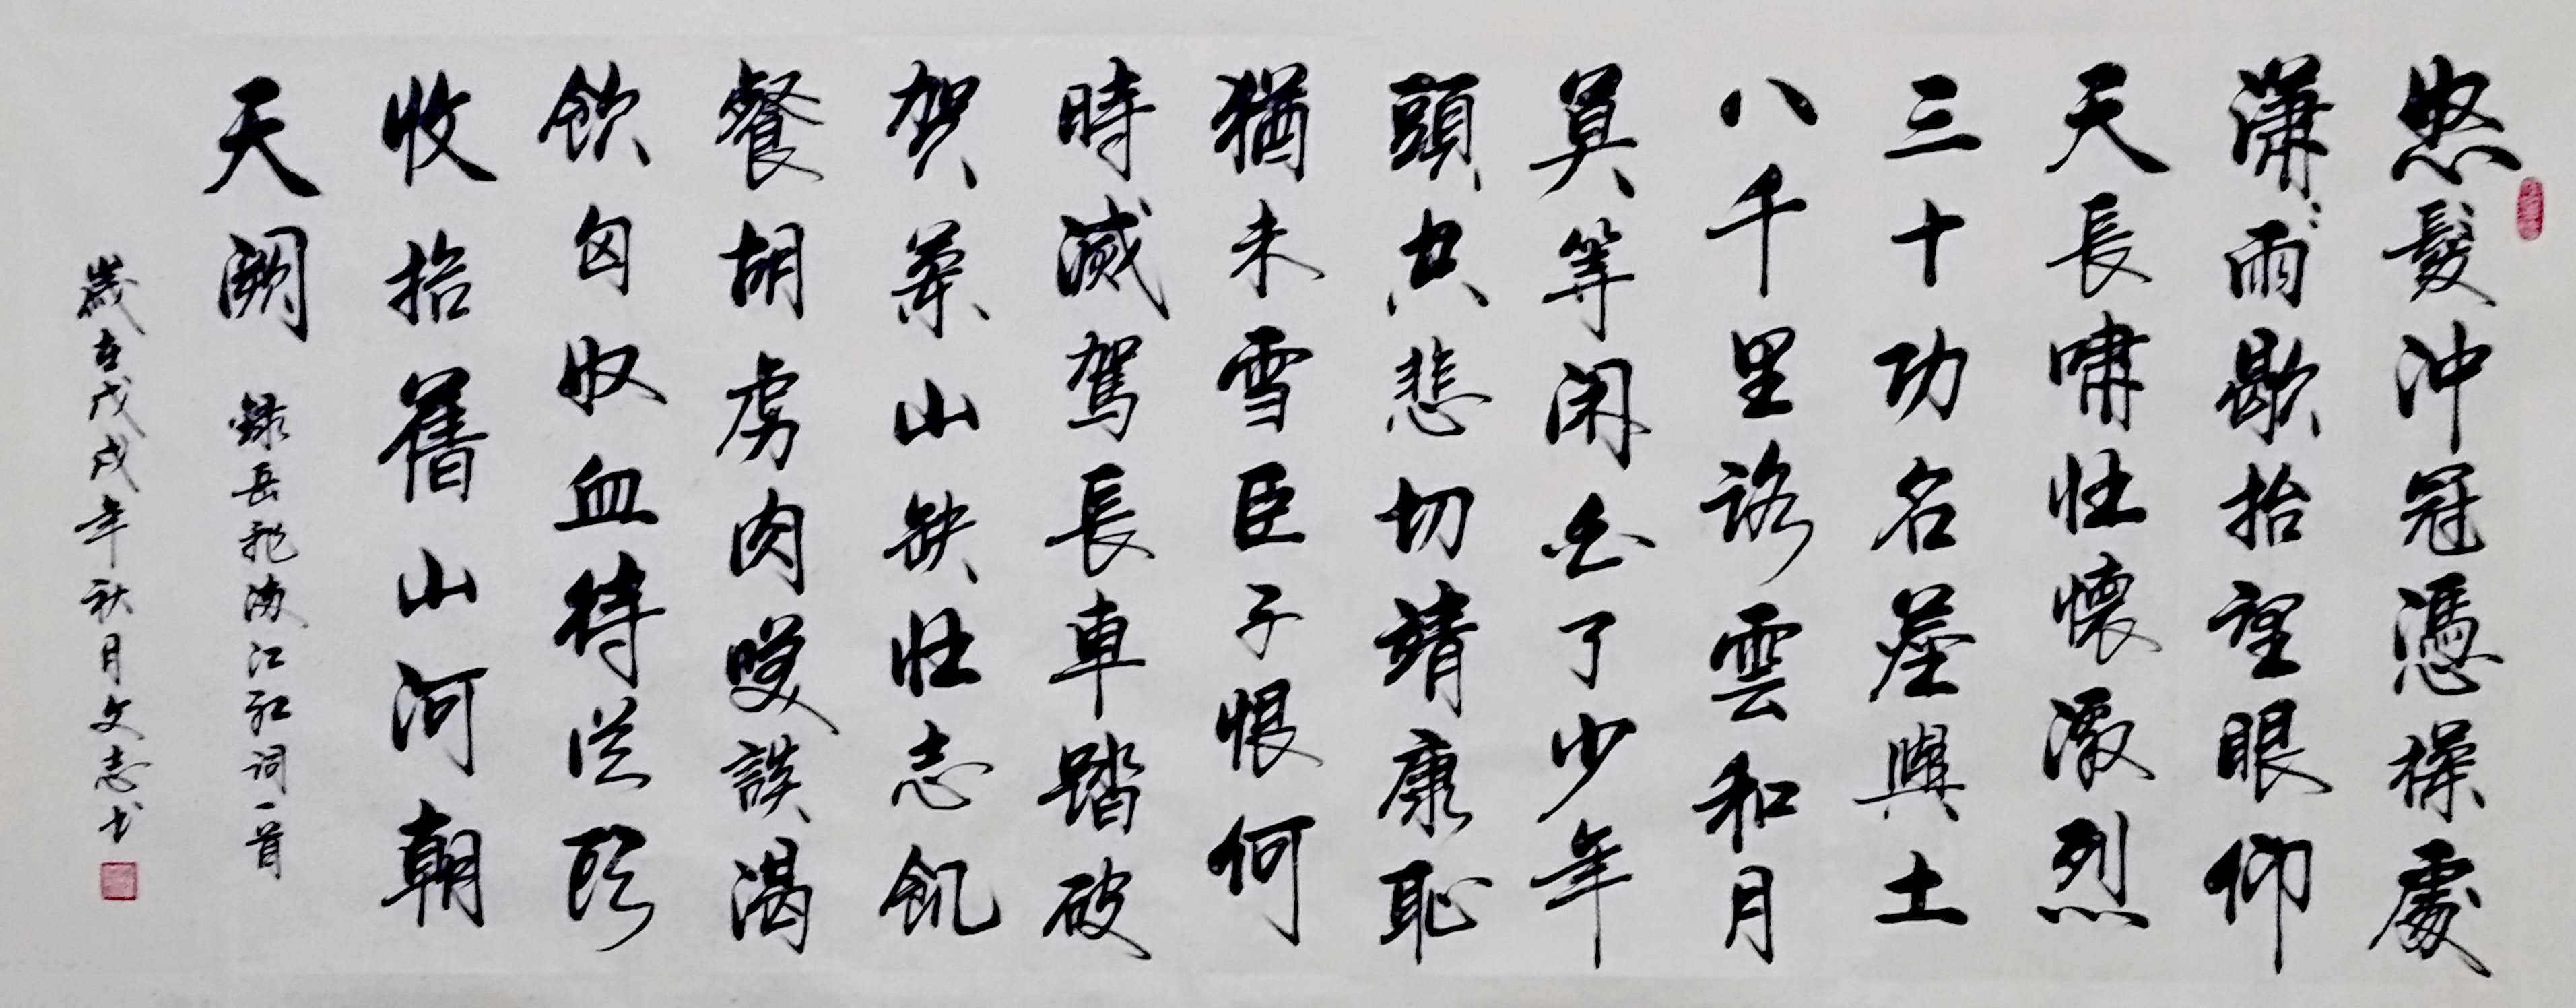 怒髮沖冠憑操處
瀟瀟雨歇抬望眼仰
天長嘯壯懷激烈
三十功名塵與土
八千里路雲和月
莫等闲白了少年
頭空悲切靖康恥
猶未雪臣子恨何
時滅駕長車踏破
贺蘭山缺壯志飢
餐胡虜肉笑談渴
飲匈奴血待從頭
收拾舊山河朝
天闕
錄岳飛滿江紅词一首
歲在戊戌年秋月文志书